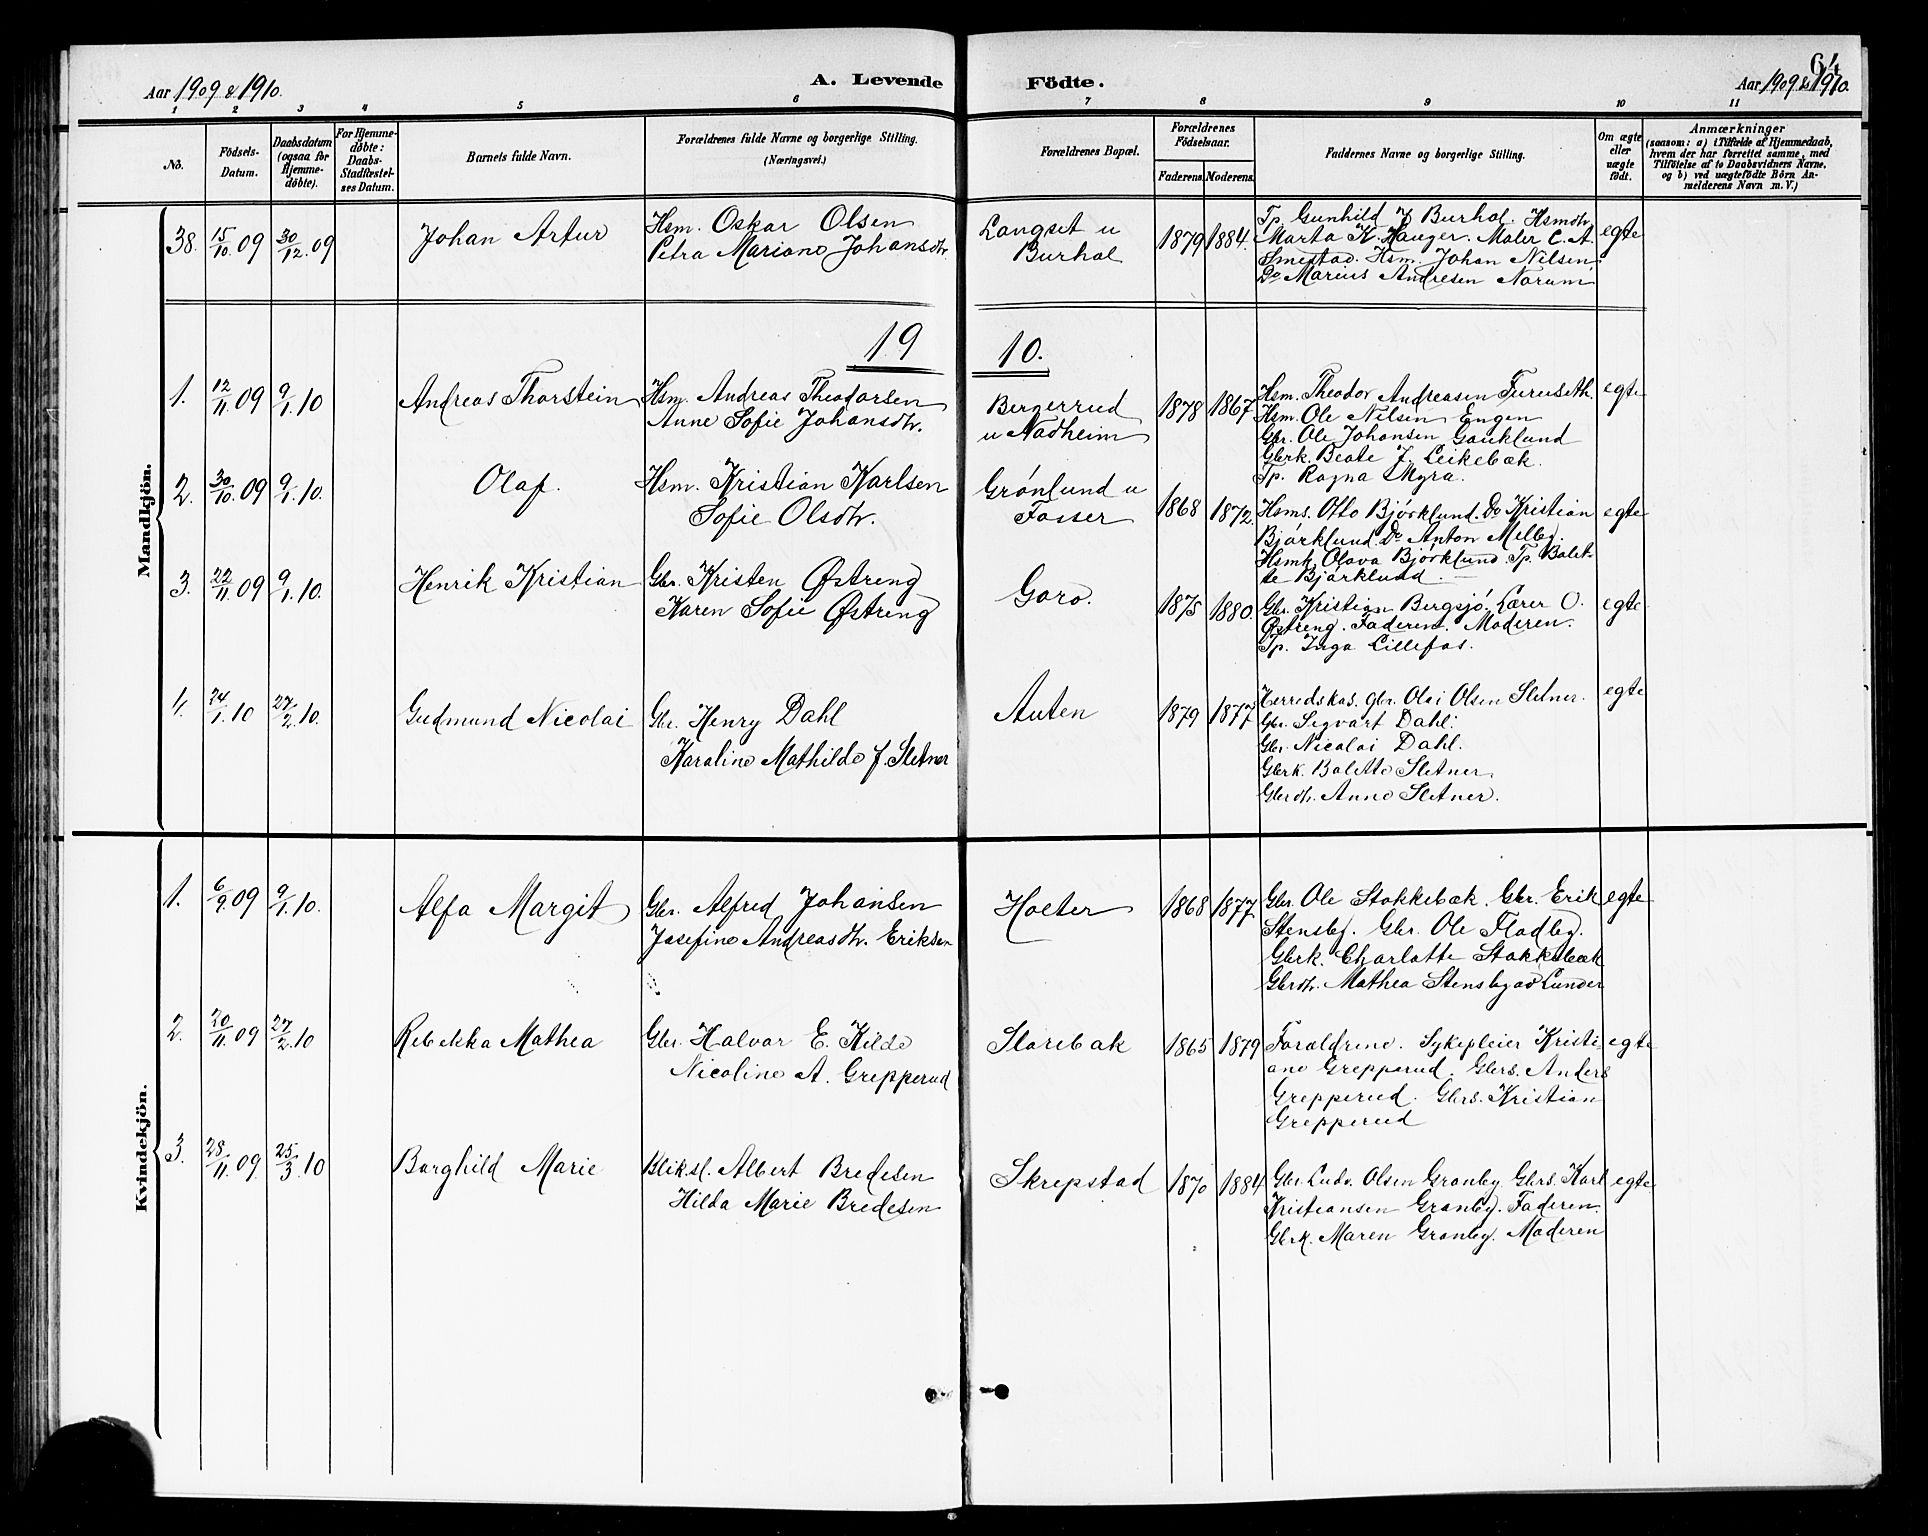 64
Aar 1909 & 1910.
A. Levende Födte.
Aar 1909 & 1910.
1 2 3 4 5 6 7 8 9 10 11
No.
Födsels-Datum.
Daabsdatum (ogsaa for Hjemme-döbte).
For Hjemme-döbte: Daabs-Stadfæstel-ses Datum.
Barnets fulde Navn.
Forældrenes fulde Navne og borgerlige Stilling.
(Næringsvei.)
Forældrenes Bopæl.
Forældrenes Födselsaar.
Faderens. Moderens.
Faddernes Navne og borgerlige Stilling.
Om ægte eller uægte födt.
Anmærkninger
(saasom: a) i Tilfælde af Hjemmedaab,
hvem der har forrettet samme, med
Tilföielse af to Daabsvidners Navne,
og b) ved uægtefödte Börn An-
melderens Navn m. V.)
Mandkjön.
38. 15/10 09 30/12 09 Johan Artur
Hsm. Oskar Olsen
Petra Mariane Johansdtr.
Langset u
Burhol
1879 1884.
Tp. Gunhild J Burhol. Hsmdtr.
Marta K. Hauger. Maler C. A.
Smestad. Hsm. Johan Nilsen
Do Marius Andresen Norum
egte
19 10.
1. 12/11 09 9/1 10 Andreas Thorstein
Hsm. Andreas Theodorsen
Anne Sofie Johansdtr.
Bergerrud
u Nadheim
1878 1867
Hsm. Theodor Andreasen Furuseth.
Hsm. Ole Nilsen Engen
Gbr. Ole Johansen Gauklund
Gbrk. Beate J. Leikebæk.
Tp. Ragna Myra.
egte
2. 30/10 09 9/1 10. Olaf.
Hsm. Kristian Karlsen
Sofie Olsdtr.
Grønlund u
Fosser
1868 1872.
Hsms. Otto Bjørklund. Do Kristian
Bjørklund. Do Anton Melby.
Hsmk. Olava Bjørklund Tp. Balet-
te Bjørklund
egte
3. 22/11 09 9/1 10. Henrik Kristian
Gbr. Kristen Østreng
Karen Sofie Østreng
Garo.
1875 1880.
Gbr. Kristian Bergsjø. Lærer O.
Østreng. Faderen. Moderen.
Tp. Inga Lillefos.
egte
4. 24/1 10 27/2 10. Gudmund Nicolai
Gbr. Henry Dahl
Karoline Mathilde f. Sletner
Auten
1879 1877
Herredskas. gbr. Olai Olsen Sletner.
Gbr. Segvart Dahl.
Gbr. Nicolai Dahl.
Gbrk. Bolette Sletner.
Gbrdtr. Anne Sletner.
egte
Kvindekjön.
1. 6/9 09 9/1 10. Alfa Margit
Gbr. Alfred Johansen
Josefine Andreasdtr. Eriksen
Holter
1868 1877.
Gbr. Ole Stokkebæk. Gbr. Erik
Stensby. Gbr. Ole Flodby.
Gbrk. Charlotte Stokkebæk
Gbrdtr. Mathea Stensby ad Lunder
egte
2. 20/11 09 27/2 10 Rebekka Mathea
Gbr. Halvor E. Kilde
Nicoline A. Grepperud
Slorebak
1865 1879
Forældrene. Sykepleier Kristi-
ane Grepperud. Gbrs. Anders
Grepperud. Gbrs. Kristian
Grepperud
egte
3. 28/11 09. 25/3 10 Borghild Marie
Bliksl. Albert Bredesen
Hilda Marie Bredesen
Skrepstad
1870 1884
Gbr. Ludv. Olsen Granby. Gbrs. Karl
Kristiansen Granby. Faderen.
Gbrk. Maren Granby. Moderen
egte